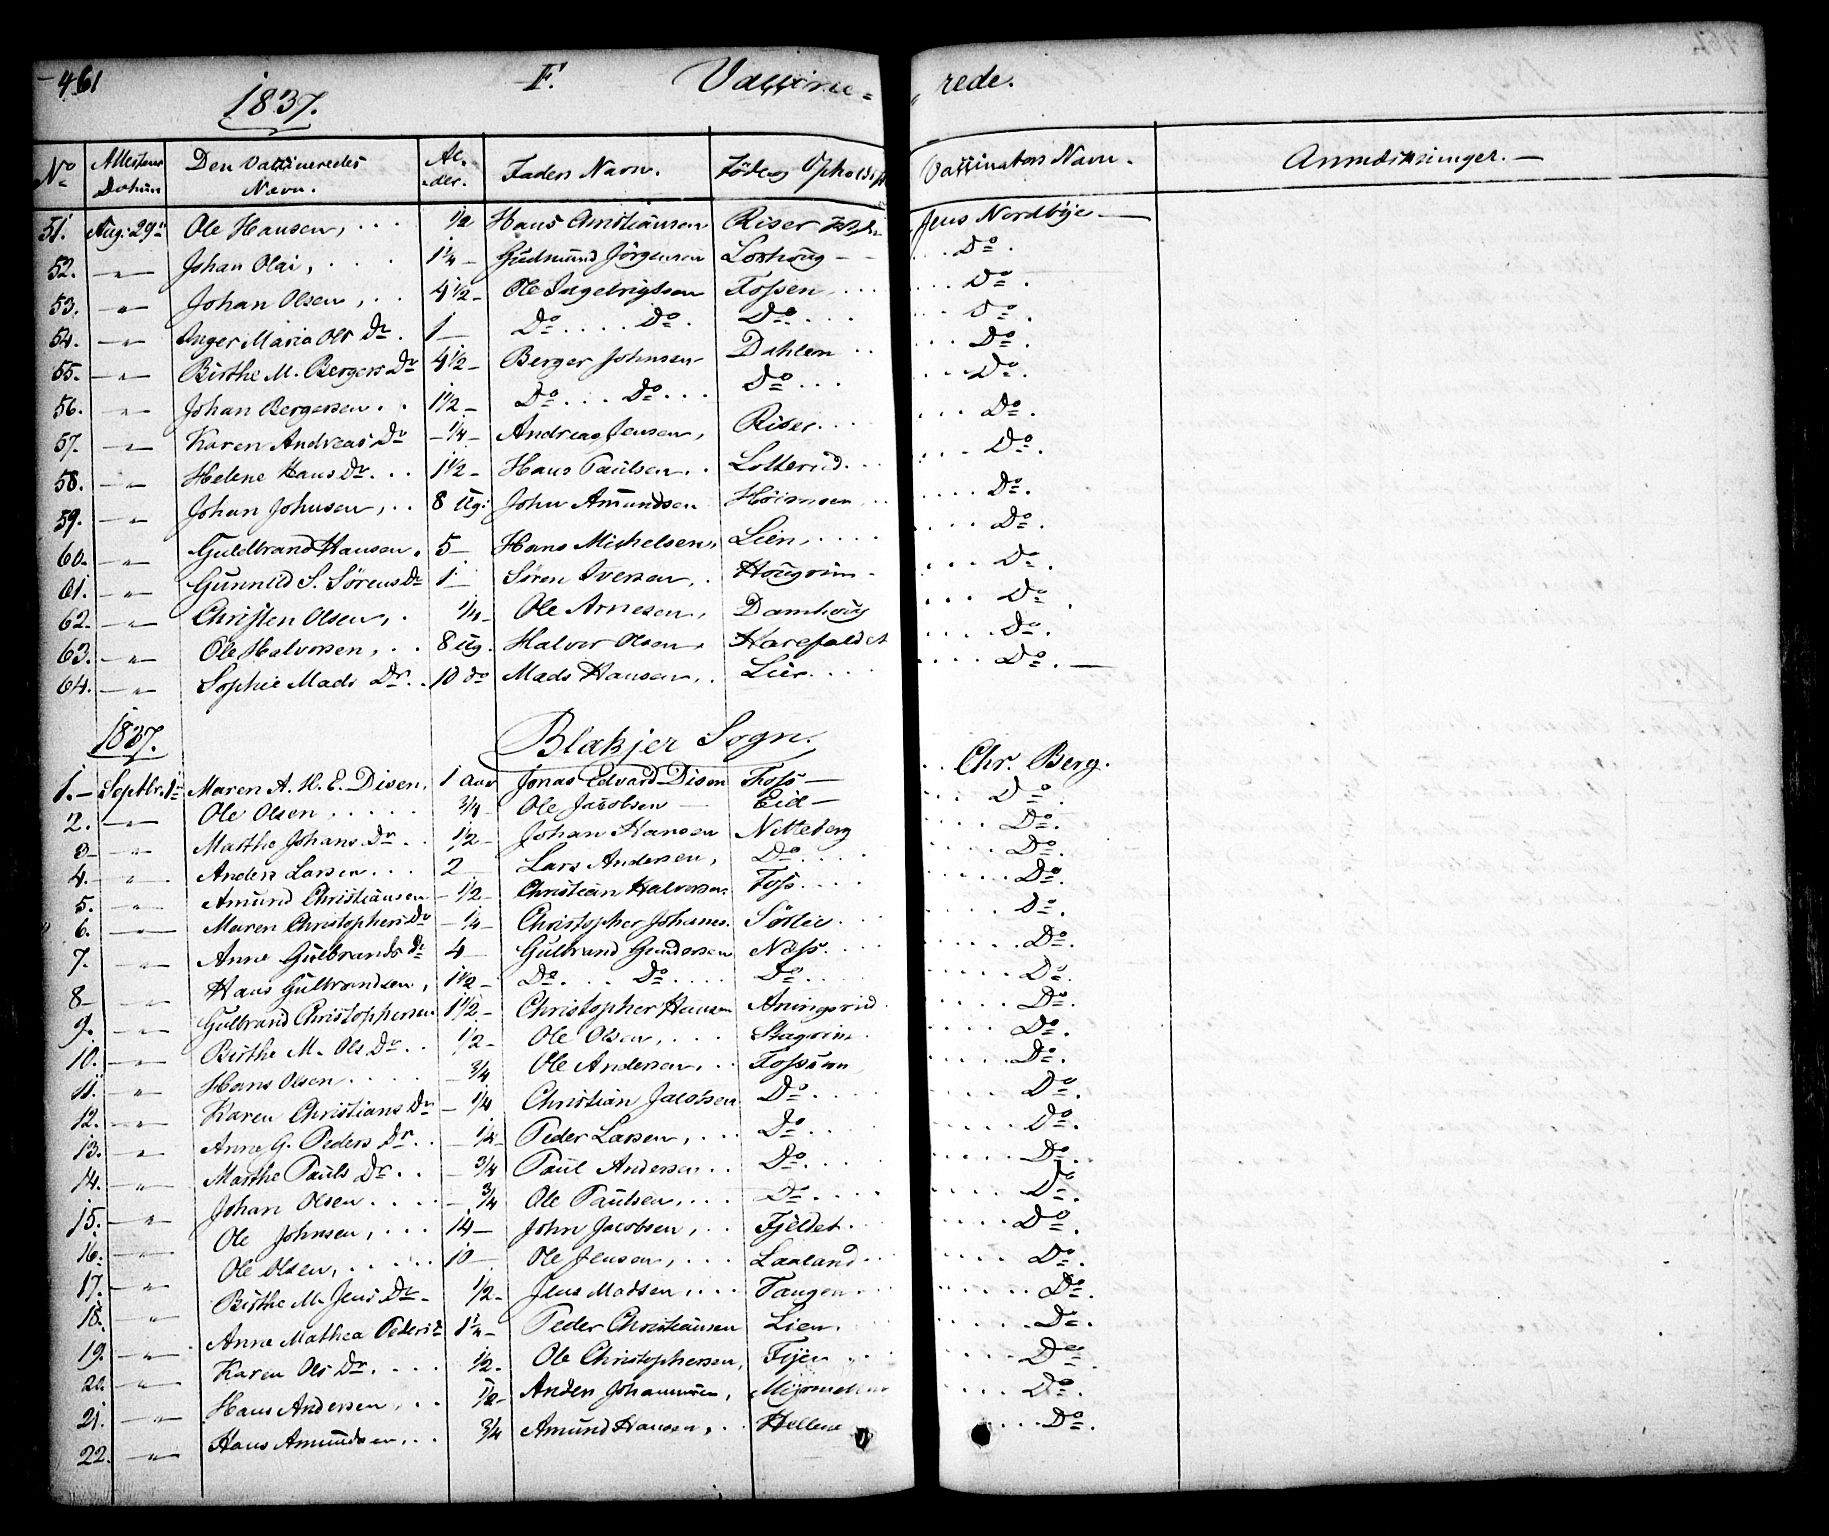 461 F. Vaccine= „rede.
1837.
No Attestens Datum Den Vaccineredes Navn. Al-der. Faders Navn. Födes Opholdss Vaccinators Navn. Anmærkninger.
51. Aug: 29de Ole Hansen, ... 1/2 Hans Christiansen Riser Jens Nordbÿe
52. — " — Johan Olai, ... 1 1/4 - Gudmund Jörgensen Loshoug - - ... Do.
53. — " — Johan Olsen, .. 4 1/2 - Ole Ingebrigtsen Fossen ... Do.
54. — " — Inger Maria Ols Dr. 1 — Do .... Do. Do ... Do.
55. — " — Birthe M. Bergers Dr 4 1/2 - Berger Johnsen Dahlem .. Do.
56. — " — Johan Bergersen .. 1 1/2 - Do ... Do ... Do ... Do.
57. — " — Karen Andreas Dr - 1/4 - Andreas Jensen, Riser ... Do.
58. — " — Helene Hans Dr. .. 1 1/2 - Hans Paulsen .. Lotterud. ... Do.
59. — " — Johan Johnsen, .. 8 Ug: John Amundsen Höimoen ... Do.
60. — " — Guldbrand Hansen. 5 - Hans Michelsen, Lien, .... Do.
61. — " — Gunnild S. Sörens Dr 1 — Sören Iversen, . Hougrim - ... Do.
62. — " — Christen Olsen, . 1/4 - Ole Arnesen, Damhoug ... Do.
63. — " — Ole Halvorsen, .. 8 Ug. Halvor Olsen, Harefaldet .... Do.
64. — " — Sophie Mads Dr. .. 10 do Mads Hansen, . Lier ... .... Do. —
1837. Blakjer Sogn.
1. - Septbr. 1ste Maren A. H. E. Disen, 1 Aar Jonas Edvard Disen Foss — .. Chr. Berg.
2. — " — Ole Olsen, .... 3/4 - Ole Jacobsen — Eid - ... Do.
3 - — " — Marthe Johans Dr. .. 1/2 - Johan Hansen Nitteberg ... Do.
4. — " — Anders Larsen ... 2 Lars Andersen, Do .... Do.
5. — " — Amund Christiansen - 1/2 - Christian Halvorsen Foss .... Do.
6. — " — Maren Christophers Dr - 1/4 - Christopher Johannes. Sörlie ... Do.
7. — " — Anne Gulbrands Dr 4 - Gulbrand Gundersen Næss. ... Do.
8 - — " — Hans Gulbrandsen, 1 1/2 - Do. ... Do. .... Do .... Do.
9. — " — Gulbrand Christophersen 1 1/2 - Christopher Hansen Aningsrud. .... Do.
10. — " — Birthe M. Ols Dr. .. 1/2 - Ole Olsen, ... Stagrim. ... Do.
11. — " — Hans Olsen .... - 3/4 Ole Andersen, .. Fossum ... Do.
12. — " — Karen Christians Dr - 1/4 Christian Jacobsen Do. ... Do.
13. — " — Anne G. Peders Dr. .. 1/4 - Peder Larsen, ... Do .... Do.
14. — " — Marthe Pauls Dr. .. - 3/4 Paul Andersen .. Do. ... Do.
15. — " — Johan Olsen .... - 3/4 Ole Paulsen, ... Do .... Do.
16. — " — Ole Johnsen, ... 14 - John Jacobsen, .. Fjeldet ... Do.
17. — " — Ole Olsen, ..... 10 — Ole Jensen, ... Laaland ... Do.
18. — " — Birthe M. Jens Dr - 1/2 - Jens Madsen, ... Tangen ... Do.
19. — " — Anne Mathea Peders Dr 1 1/4 - Peder Christiansen Lien. ... Do.
20. — " — Karen Ols Dr. .... 1/2 - Ole Christophersen, Fijen ... Do.
21. — " — Hans Andersen, .. 1/2 - Anders Johannesen, ... Do.
22. — " — Hans Amundsen, .. 3/4 Amund Hansen, . Hellene ... Do.